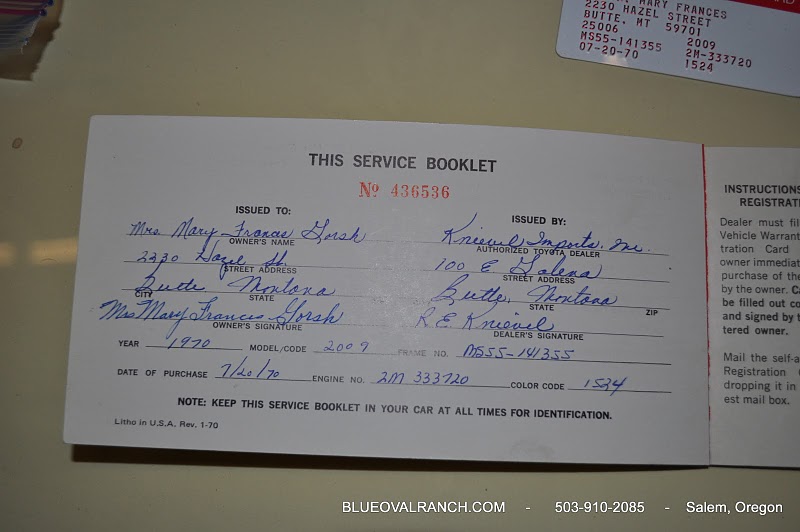 MARY FRANCES
2230 HAZEL STREET
BUTTE, MT 59701
25006 2009
MS55-141355 2M-333720
07-20-70 1524
THIS SERVICE BOOKLET
№ 436536
ISSUED TO:
ISSUED BY:
Mrs. Mary Frances Gorsh
OWNER'S NAME
Knievel Imports, Inc.
AUTHORIZED TOYOTA DEALER
2230 Hazel St.
STREET ADDRESS
100 E. Galena
STREET ADDRESS
Butte, Montana
CITY STATE
Butte, Montana
STATE ZIP
Mrs Mary Frances Gorsh
OWNER'S SIGNATURE
R.E. Knievel
DEALER'S SIGNATURE
YEAR 1970 MODEL/CODE 2009 FRAME NO. MS55-141355
DATE OF PURCHASE 7/20/70 ENGINE NO. 2M 333720 COLOR CODE 1524
NOTE: KEEP THIS SERVICE BOOKLET IN YOUR CAR AT ALL TIMES FOR IDENTIFICATION.
Litho in U.S.A. Rev. 1-70
INSTRUCTIONS
REGISTRATI
Dealer must fil
Vehicle Warrant
tration Card
owner immediat
purchase of the
by the owner. Ca
be filled out co
and signed by t
tered owner.
Mail the self-a
Registration
dropping it in
est mail box.
BLUEOVALRANCH.COM - 503-910-2085 - Salem, Oregon